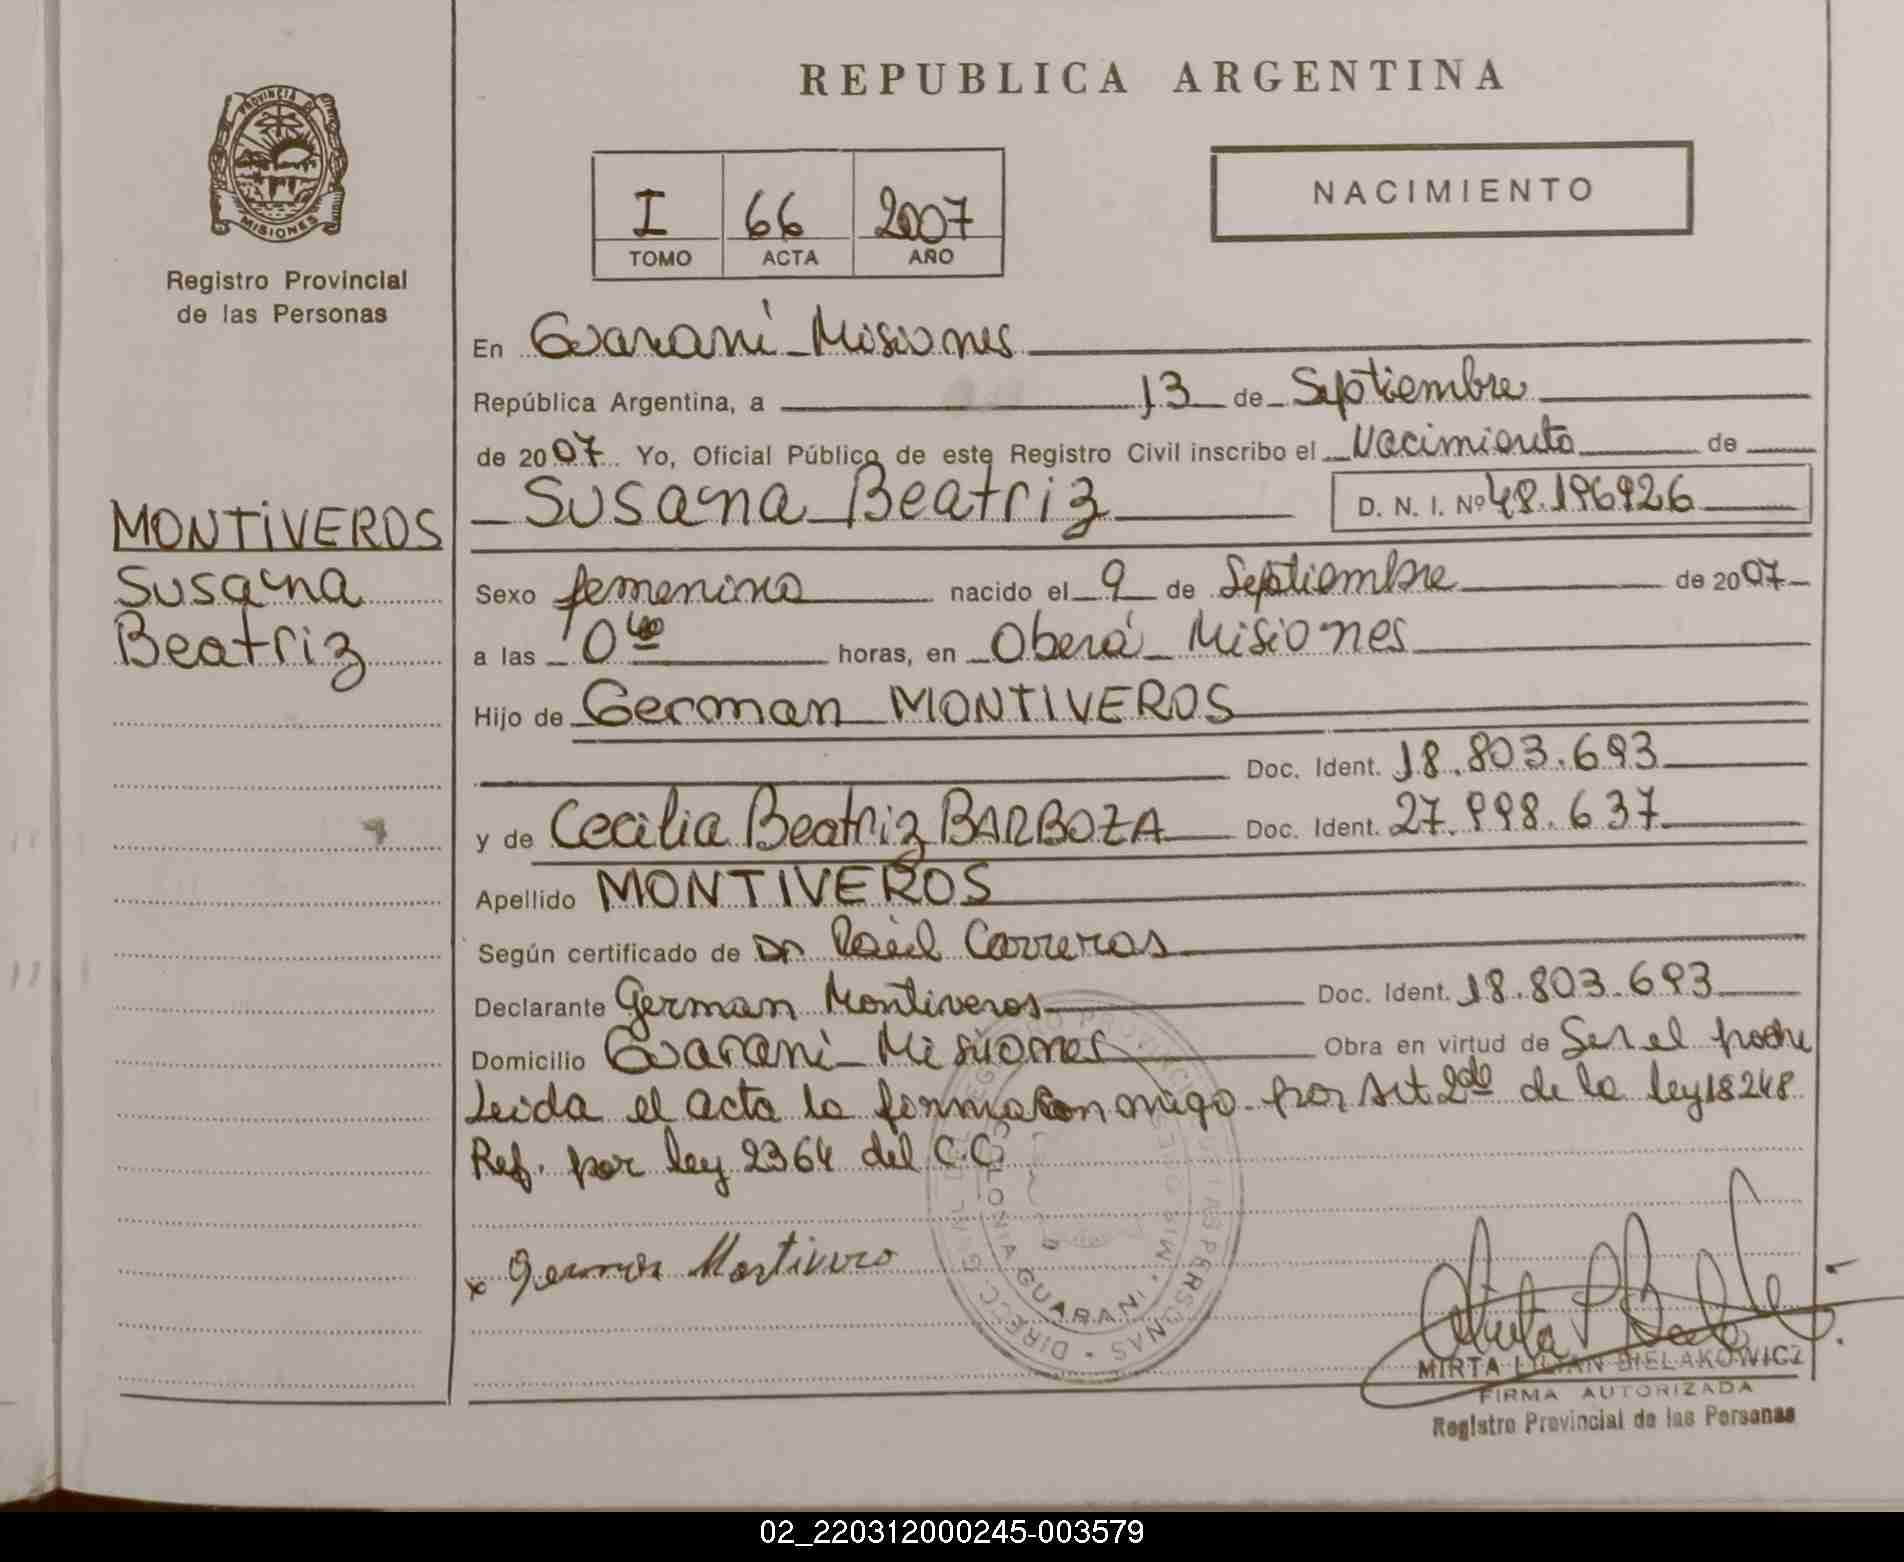 REPUBLICA ARGENTINA
PROVINCIA DE
MISIONES
Registro Provincial
de las Personas
I 66 2007
TOMO ACTA AÑO
NACIMIENTO
En Guaraní - Misiones
República Argentina, a 13 de Septiembre
de 2007 Yo, Oficial Público de este Registro Civil inscribo el Nacimiento de
Susana Beatriz D. N. I. Nº 48.196926
MONTIVEROS
Susana
Beatriz
Sexo femenino nacido el 9 de Septiembre de 2007
a las 0 horas, en Oberá - Misiones
Hijo de German MONTIVEROS
Doc. Ident. 18.803.693
y de Cecilia Beatriz BARBOZA Doc. Ident. 27.998.637
Apellido MONTIVEROS
Según certificado de Dr Raúl Carreras
Declarante German Montiveros Doc. Ident. 18.803.693
Domicilio Guaraní - Misiones Obra en virtud de Ser el padre
Leida el acta la firma conmigo - por Art 2do de la ley 18248
Ref. por ley 2364 del C.C.
x German Montivero
COLONIA GUARANI
MIRTA LILIAN BIELAKOWICZ
FIRMA AUTORIZADA
Registro Provincial de las Personas
02_220312000245-003579